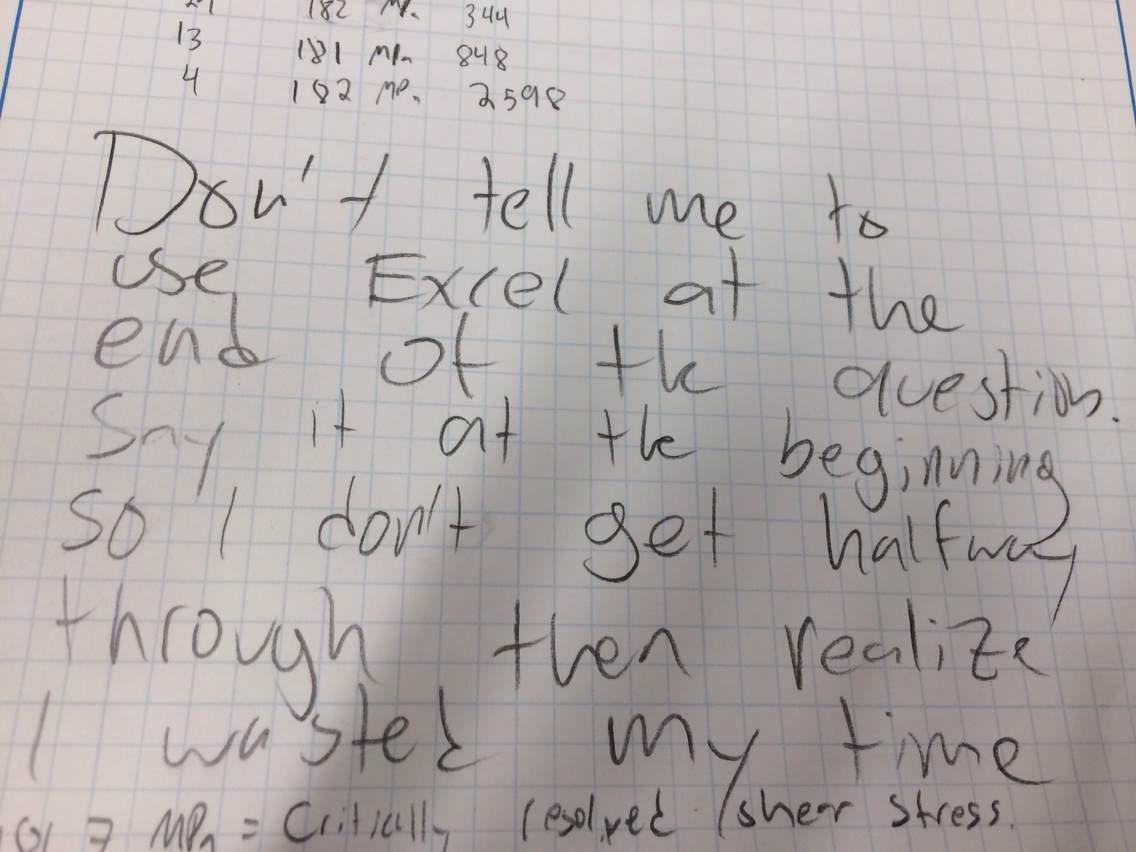 182 MPa 344
13 181 MPa 848
4 182 MPa 2598
Don't tell me to
use Excel at the
end of the question.
Say it at the beginning
so I don't get halfway
through then realize
I wasted my time
MPa = Critically resolved shear stress.